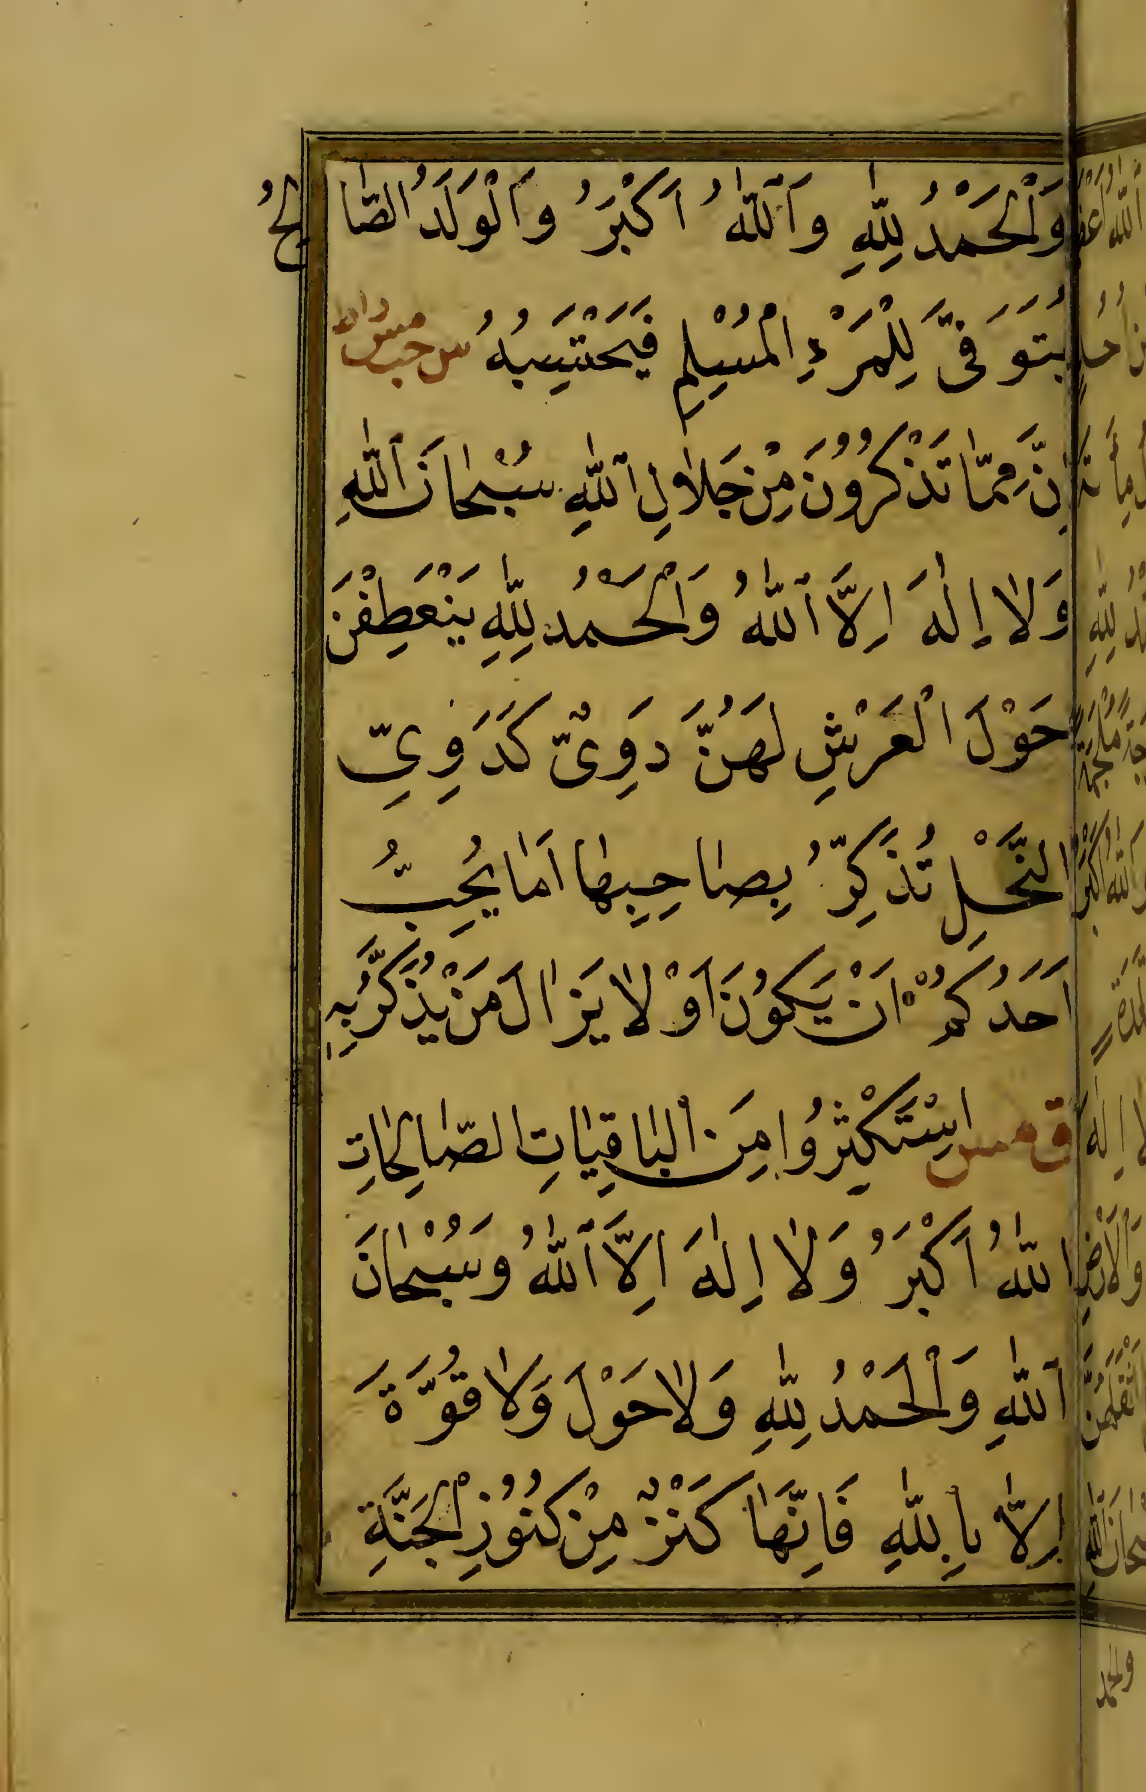 وَالْحَمْدُ لِلّٰهِ وَاللّٰهُ اَكْبَرُ وَالْوَلَدُ الصَّالِحُ
يُتَوَفّٰى لِلْمَرْءِ الْمُسْلِمِ فَيَحْتَسِبُهُ س حب مس
اِنَّ مِمَّا تَذْكُرُوْنَ مِنْ جَلَالِ اللّٰهِ سُبْحَانَ اللّٰهِ
وَلَا اِلٰهَ اِلَّا اللّٰهُ وَالْحَمْدُ لِلّٰهِ يَنْعَطِفْنَ
حَوْلَ الْعَرْشِ لَهُنَّ دَوِيٌّ كَدَوِيِّ
النَّحْلِ تُذَكِّرُ بِصَاحِبِهَا اَمَا يُحِبُّ
اَحَدُكُمْ اَنْ يَكُوْنَ اَوْ لَا يَزَالَ مَنْ يُذَكِّرُ بِهِ
ق مس اِسْتَكْثِرُوا مِنَ الْبَاقِيَاتِ الصَّالِحَاتِ
اللّٰهُ اَكْبَرُ وَلَا اِلٰهَ اِلَّا اللّٰهُ وَسُبْحَانَ
اللّٰهِ وَالْحَمْدُ لِلّٰهِ وَلَا حَوْلَ وَلَا قُوَّةَ
اِلَّا بِاللّٰهِ فَاِنَّهَا كَنْزٌ مِنْ كُنُوْزِ الْجَنَّةِ